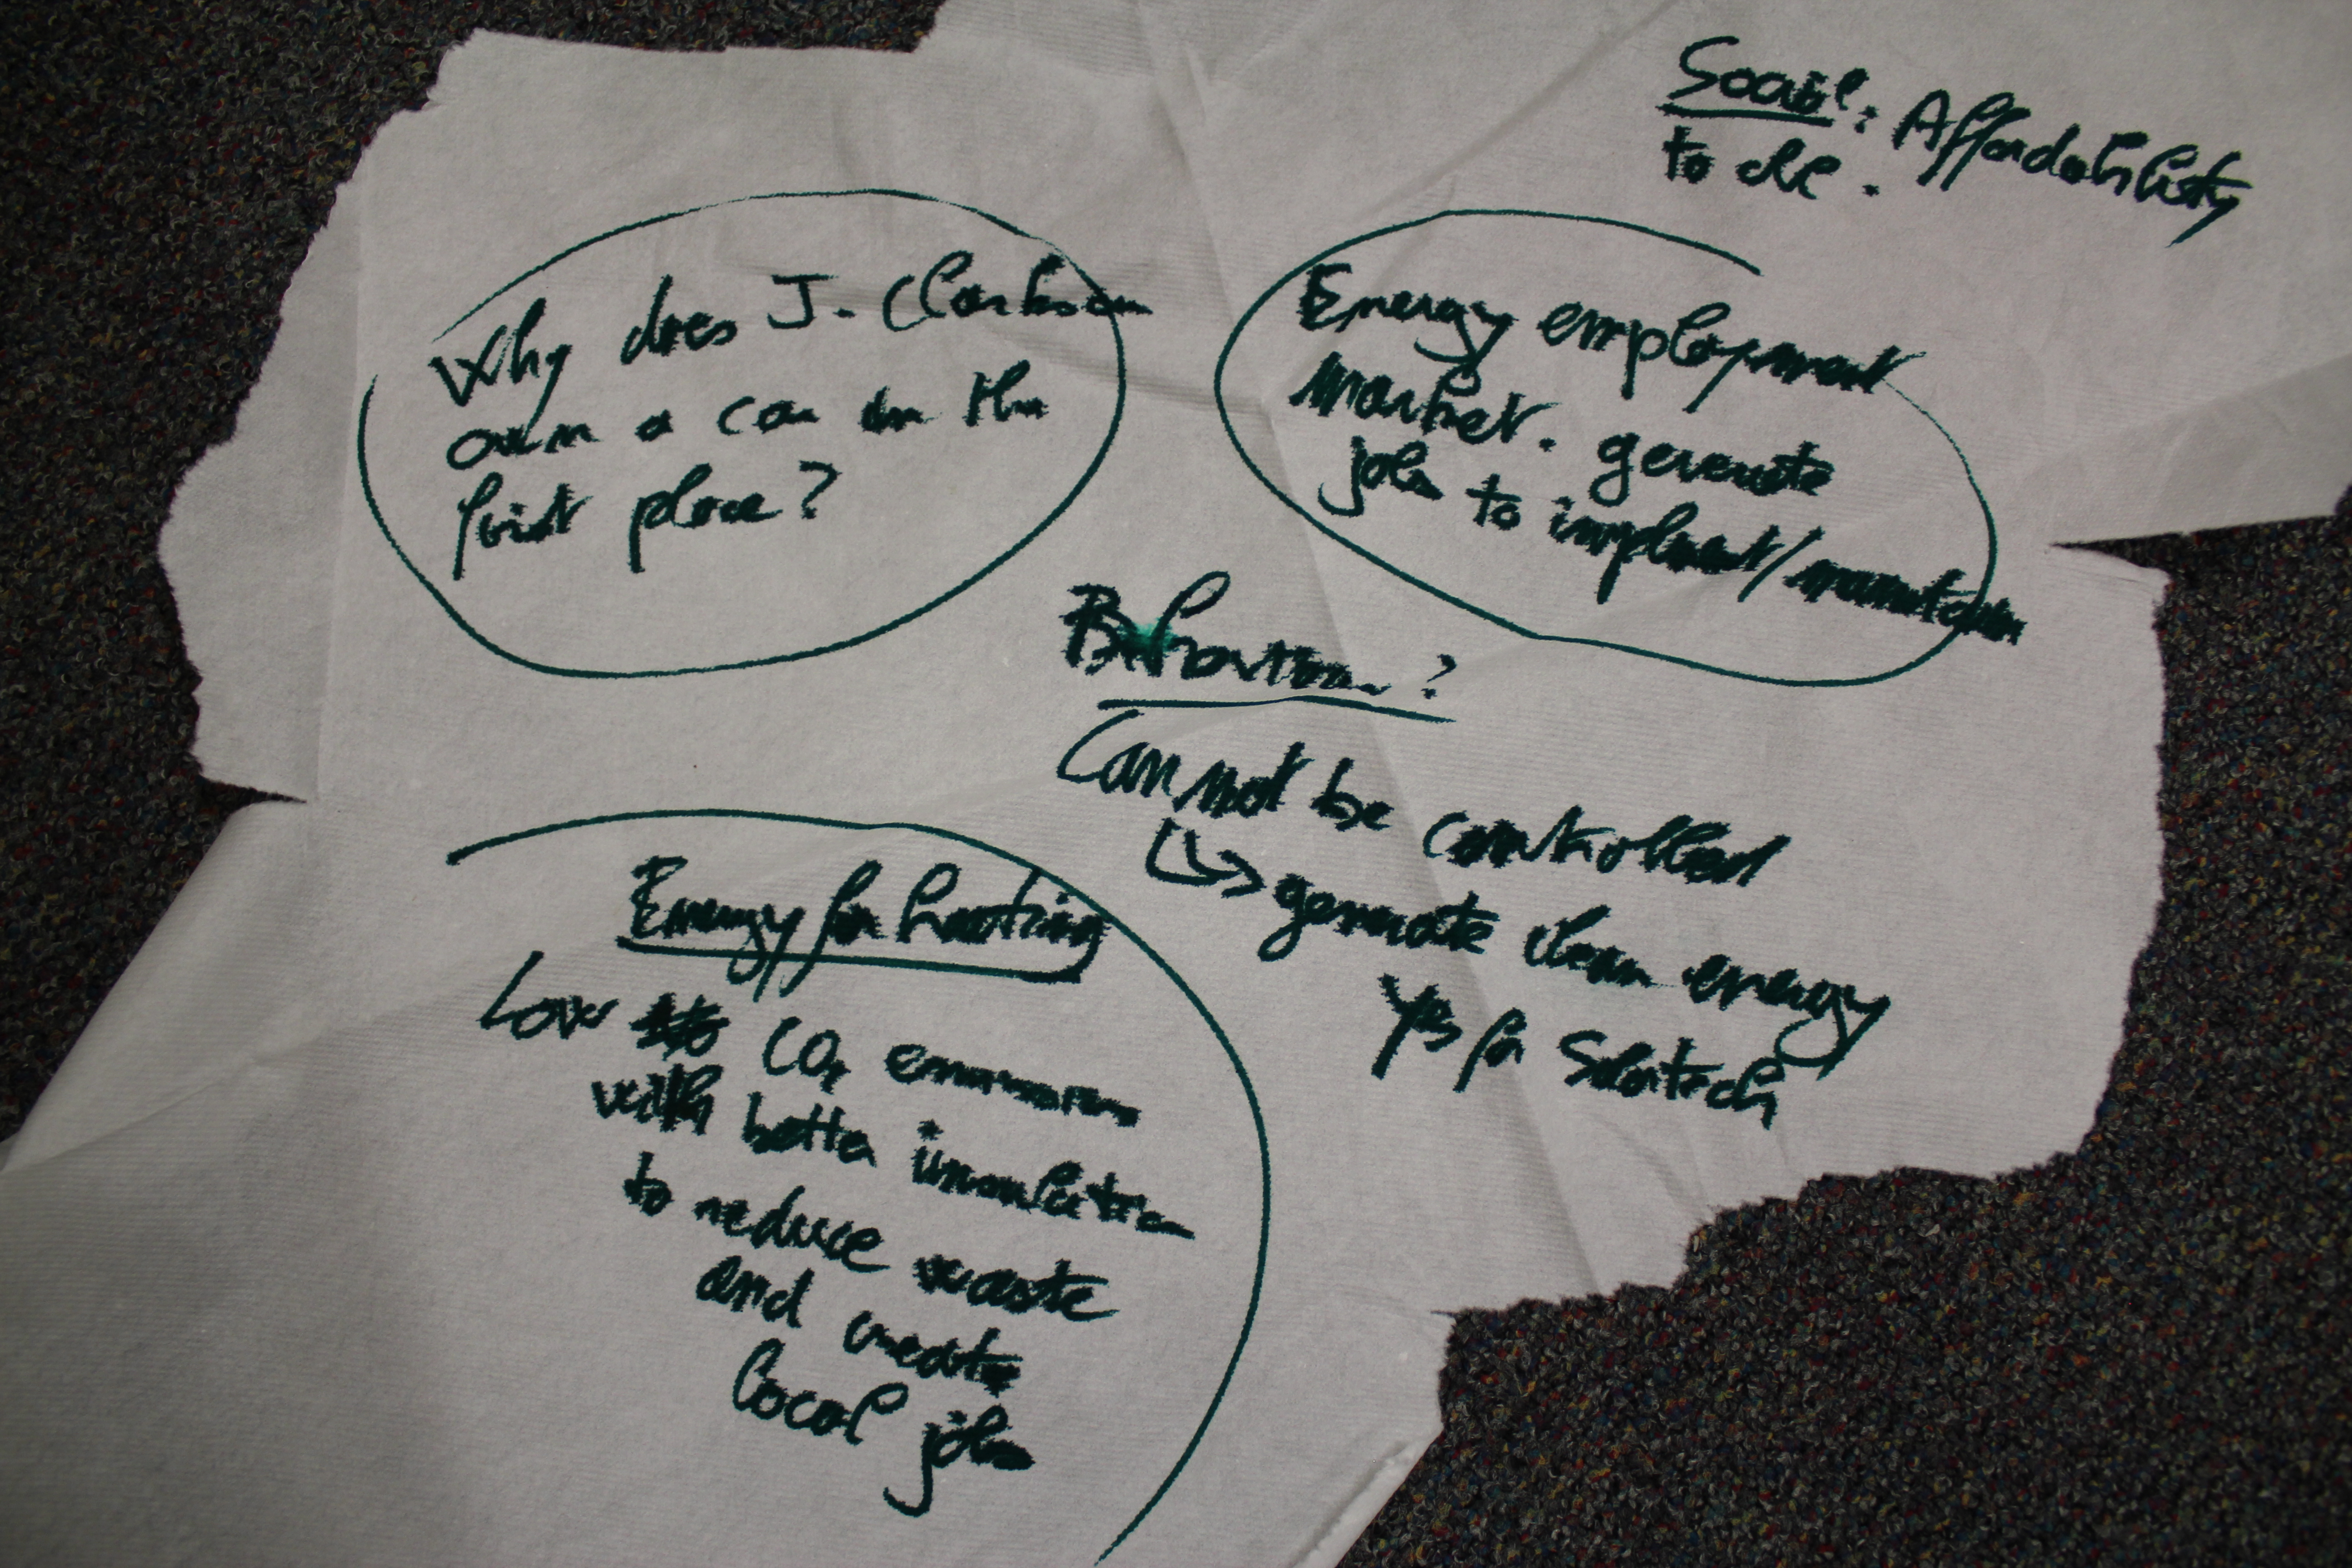 Social: Affordability
to
Why does J. Clarkson
own a car in the
first place?
Energy employment
market. generate
jobs to implement/maintain
Behaviour?
Can not be controlled
generate clean energy
Yes for Solartech
Energy for heating
Low CO2 emissions
with better insulation
to reduce waste
and create
local jobs